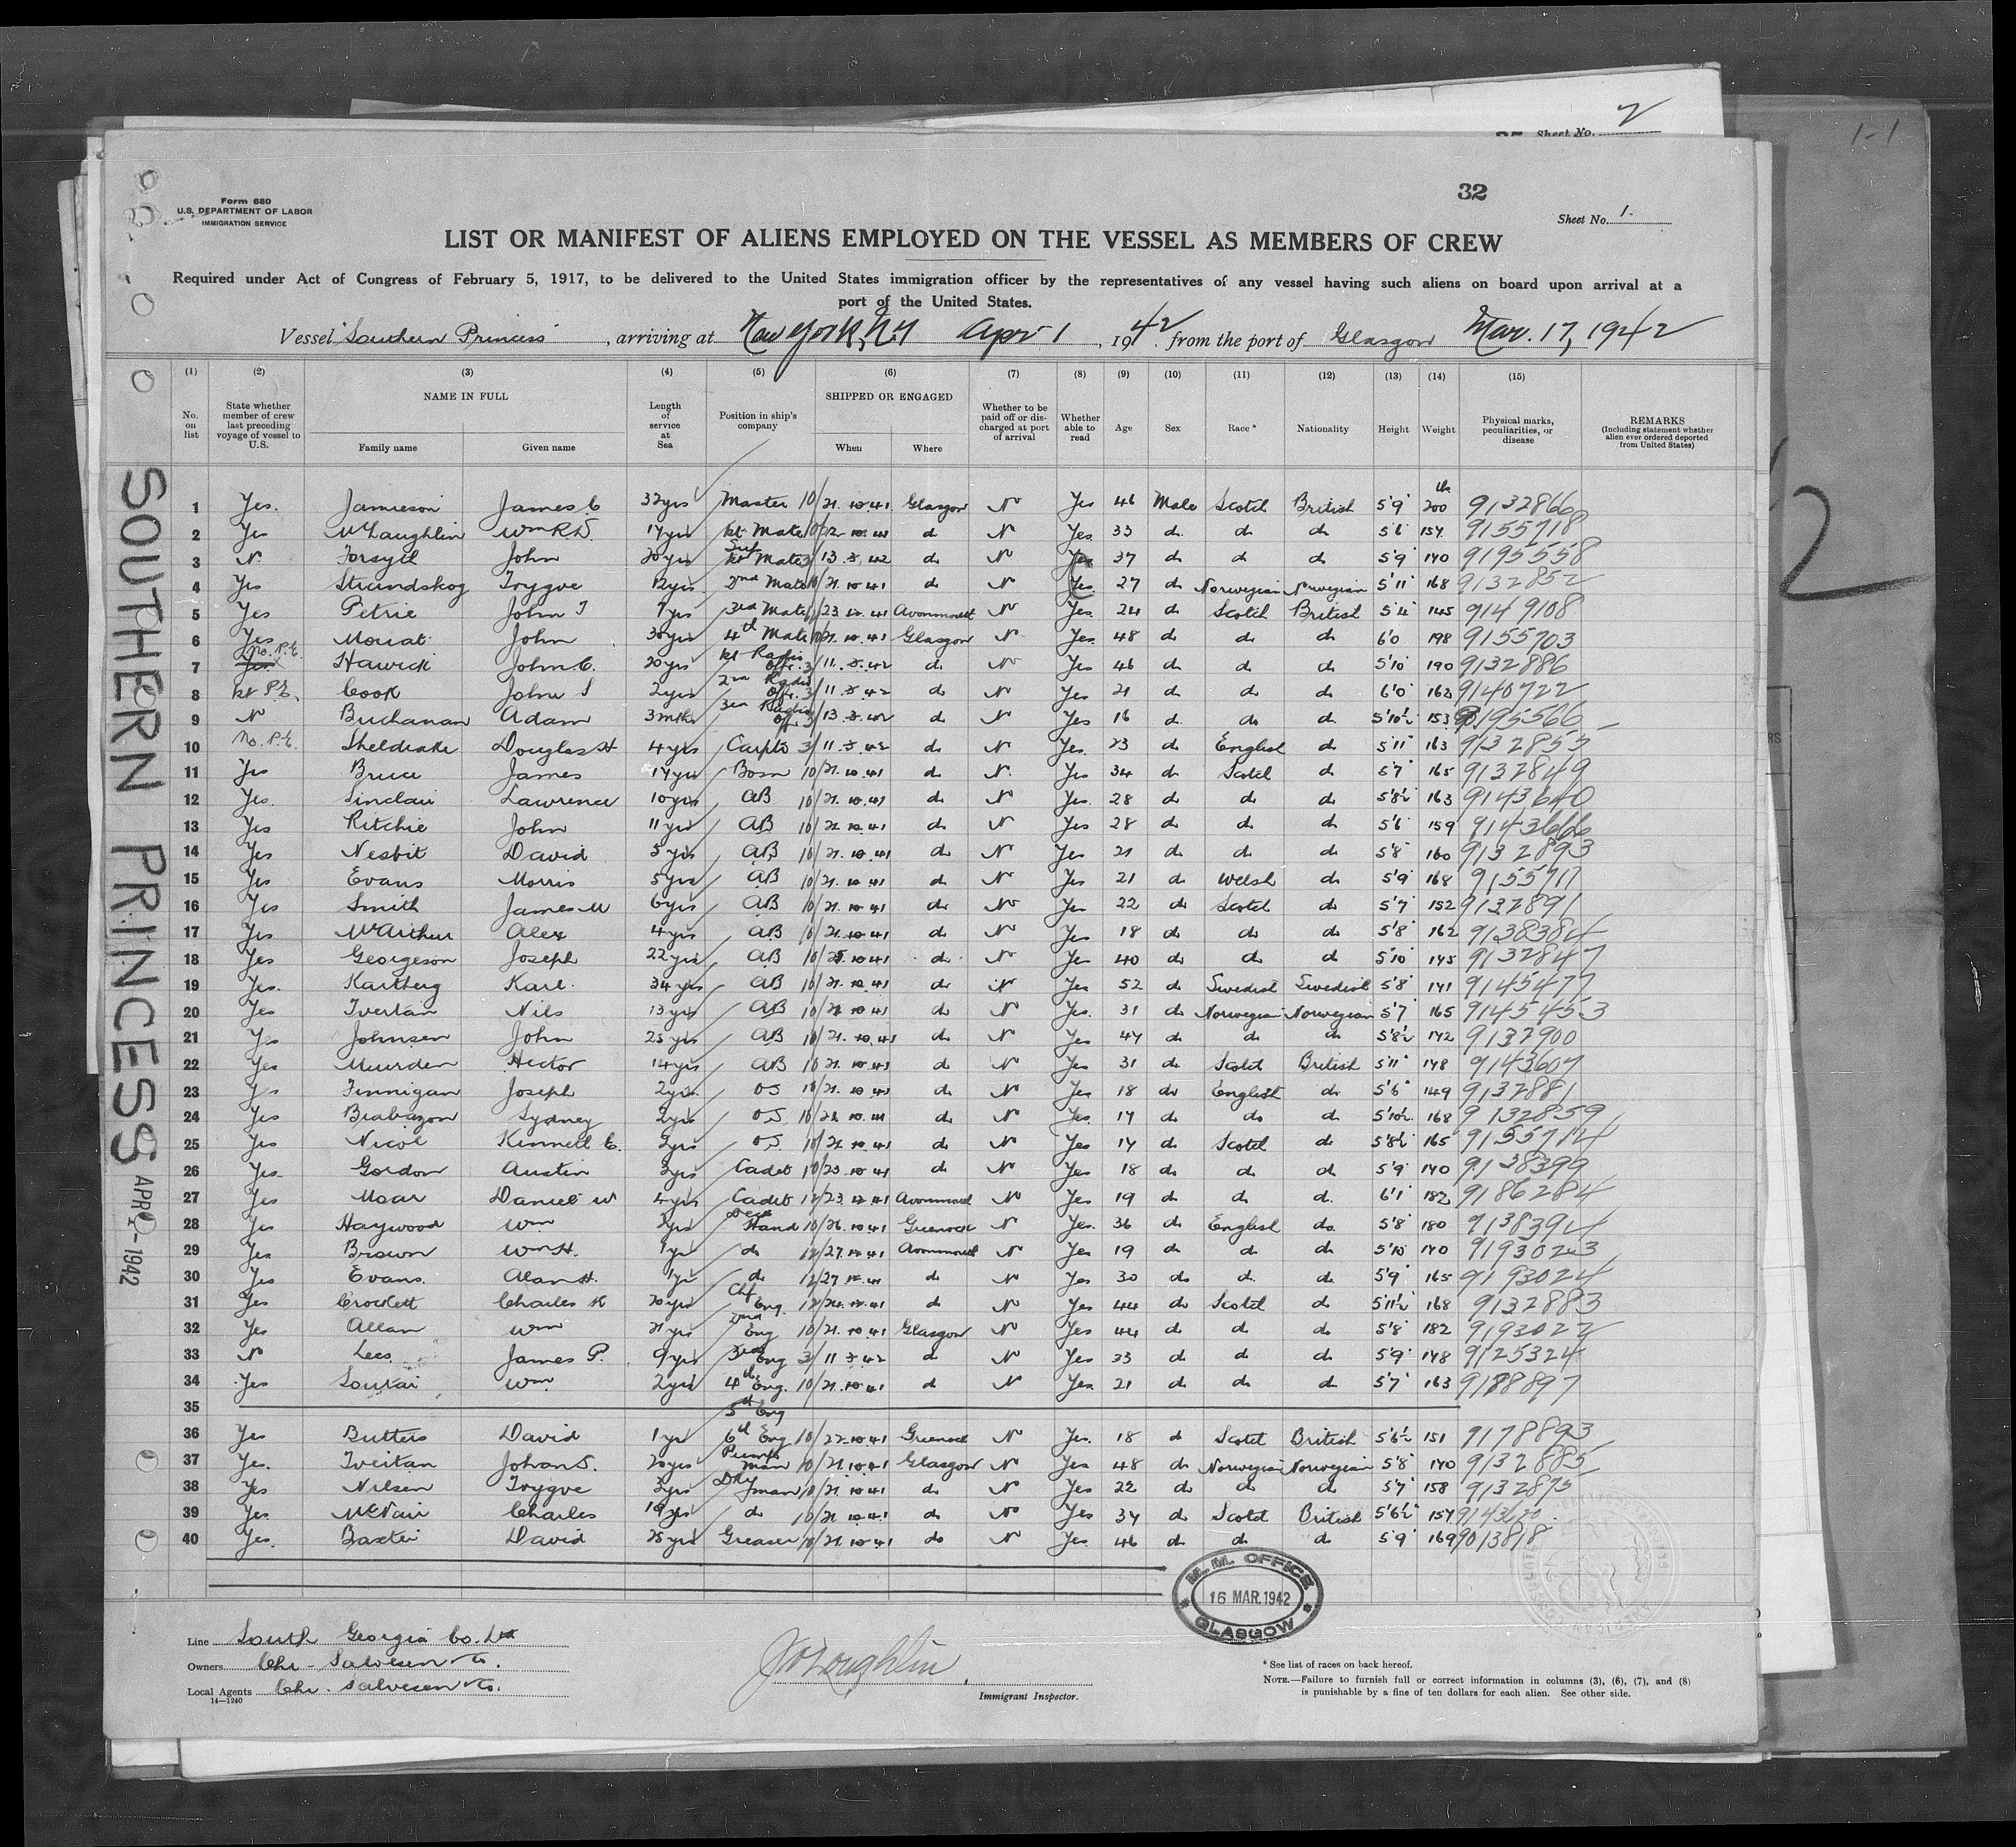 2
Sheet No.
1-1
32
Form 680
U.S. DEPARTMENT OF LABOR
IMMIGRATION SERVICE
Sheet No. 1.
LIST OR MANIFEST OF ALIENS EMPLOYED ON THE VESSEL AS MEMBERS OF CREW
Required under Act of Congress of February 5, 1917, to be delivered to the United States immigration officer by the representatives of any vessel having such aliens on board upon arrival at a
port of the United States.
Vessel "Southern Princess", arriving at New York, N.Y Apr 1, 1942. from the port of Glasgow Mar. 17, 1942
(1) (2) (3) (4) (5) (6) (7) (8) (9) (10) (11) (12) (13) (14) (15)
No. on list State whether member of crew last preceding voyage of vessel to U.S. NAME IN FULL Family name Given name Length of service at Sea Position in ship's company SHIPPED OR ENGAGED When Where Whether to be paid off or discharged at port of arrival Whether able to read Age Sex Race * Nationality Height Weight Physical marks, peculiarities, or disease REMARKS (Including statement whether alien ever ordered deported from United States)
SOUTHERN PRINCESS APR 1 - 1942
1 Yes. Jamieson James C 32yrs Master 10/21.10.41 Glasgow No Yes 46 Male Scotch British 5'9" 200 9132866
2 Yes McLaughlin Wm R.D. 17yrs 1st Mate do N Yes. 33 do. do do 5'6 157 9155718
3 N. Forsyth John 20yrs Sup 1st Mate 3/13.3.42 do N Yes 37 do do do 5'9" 170 9195558
4 Yes Strandskog Trygve 12yrs. 2nd Mate 10/21.10.41 do N Yes. 27 do Norwegian Norwegian 5'11" 168 9132852
5 Yes Petrie John T 7yrs 3rd Mate 12/23.12.41 Avonmouth N Yes. 24 do Scotch British 5'11" 145 9149108
6 Yes Mouat John 30yrs 4th Mate 10/21.10.41 Glasgow N Yes. 48 do do do 6'0 198 9155703
7 No. P.E. Hawick John C. 20yrs 1st Radio Offr. 3/11.3.42 do No Yes 46 do do do 5'10" 190 9132886
8 1st P.E. Cook John S 2yrs 2nd Radio Offr. 3/11.3.42 do N Yes 21 do do do 6'0" 162 9140722
9 N Buchanan Adam 3mths 3rd Radio Off 3/13.3.42 do N Yes 16 do. do do 5'10½ 153 9195566
10 No. P.E. Sheldrake Douglas H 4yrs Carptr 3/11.3.42 do N Yes. 23 do English do 5'11" 163
11 Yes Bruce James 17yrs Bosn 10/21.10.41 do N. Yes 34 do Scotch do 5'7" 165 9132849
12 Yes. Sinclair Lawrence 10yrs AB 10/21.10.41 do N Yes. 28 do do do 5'8½ 163 9143640
13 Yes Ritchie John 11yrs AB 10/21.10.41 do N Yes 28 do do do 5'6" 159 9143666
14 Yes Nesbit David 5yrs AB 10/21.10.41 do N Yes 21 do do do 5'8" 160 9132893
15 Yes Evans Morris 5yrs AB 10/21.10.41 do N Yes 21 do Welsh do 5'9" 168 9155717
16 Yes Smith James M 6yrs AB 10/21.10.41 do No Yes 22 do Scotch do 5'7" 152 9132891
17 Yes McArthur Alex 4yrs AB 10/21.10.41 do N Yes 18 do do do 5'8" 162 9138384
18 Yes Georgeson Joseph 22yrs AB 10/21.10.41 do. N Yes 40 do do do 5'10" 145 9132847
19 Yes. Karlberg Karl 34yrs AB 10/21.10.41 do N Yes 52 do Swedish Swedish 5'8" 141 9145477
20 Yes Tveitan Nils 13yrs AB 10/21.10.41 do N Yes. 31 do Norwegian Norwegian 5'7" 165 9145453
21 Yes Johnsen John 25yrs AB 10/21.10.41 do N Yes 47 do do do 5'8½ 142 9132900
22 Yes Muirden Hector 14yrs AB 10/21.10.41 do N Yes 31 do Scotch British 5'11" 148 9143607
23 Yes Finnigan Joseph 2yrs OS 10/21.10.41 do N Yes 18 do English do 5'6" 149 9132881
24 Yes Brabazon Sydney 2yrs O.S. do N Yes. 17 do do do 5'10½ 168 9132859
25 Yes Nicol Kenneth C. 2yrs O.S. 10/21.10.41 do N Yes 17 do Scotch do 5'8½ 165 9155714
26 Yes. Gordon Austin 3yrs Cadet 10/23.10.41 do N Yes 18 do do do 5'9" 140 9138399
27 Yes Moar Daniel W 4yrs Cadet 12/23.12.41 Avonmouth No Yes 19 do do do. 6'1" 182 9186284
28 Yes Haywood Wm Deck Hand 10/26.10.41 Greenock N Yes. 36 do English do. 5'8" 180 9138394
29 Yes Brown Wm H. 1yr do 12/27.12.41 Avonmouth N Yes 19 do do do 5'10" 140 9193023
30 Yes Evans. Alan H. 1yr do 12/27.12.41 do No Yes 30 do do. do. 5'9" 165 9193024
31 Yes Crockett Charles K 20yrs Chf Eng. do No Yes 44 do Scotch do 5'11½ 168 9132883
32 Yes Allan Wm 21yrs 2nd Eng 10/21.10.41 Glasgow N Yes 44 do do do 5'8" 182 9193022
33 N Lees James P. 9yrs 3rd Eng 3/11.3.42 do N Yes 33 do do do 5'9" 148 9125324
34 Yes Soutar Wm 2yrs 4th Eng. 10/21.10.41 do N Yes. 21 do do do 5'7" 163
35 5th Eng
36 Yes Butters David 1yr 6th Eng 10/22.10.41 Greenock N Yes. 18 do Scotch British 5'6½ 151 9178893
37 Yes. Tveitan Johan S. 20yrs Pump man 10/21.10.41 Glasgow N Yes 48 do Norwegian Norwegian 5'8" 170 9132885
38 Yes Nilsen Trygve 3yrs Dky man 10/21.10.41 do N Yes 22 do do do 5'7" 158 9132875
39 Yes. McNair Charles 19yrs do 10/21.10.41 do No Yes 34 do Scotch British 5'6½" 157 9143620
40 Yes. Baxter David 25yrs Greaser 10/21.10.41 do N Yes. 46 do do do 5'9" 169 9013818
M.M. OFFICE
16 MAR. 1942
GLASGOW
Line South Georgia Co. Ltd
Owners Chr. Salvesen & Co.
Local Agents Chr. Salvesen & Co.
14—1240
J O'Loughlin, Immigrant Inspector.
* See list of races on back hereof.
NOTE.—Failure to furnish full or correct information in columns (3), (6), (7), and (8)
is punishable by a fine of ten dollars for each alien. See other side.